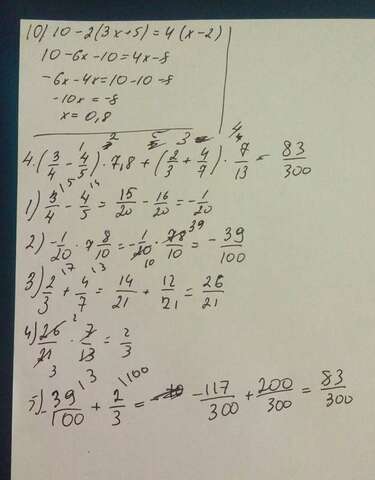 10) 10-2(3x+5)=4(x-2)
10-6x-10=4x-8
-6x-4x=10-10-8
-10x=-8
x=0,8
4.(3/4-4/5)·7,8+(2/3+4/7)·7/13=83/300
1) 3/4-4/5=15/20-16/20=-1/20
2) -1/20·7 8/10=-1/20·78/10=-39/100
3) 2/3+4/7=14/21+12/21=26/21
4) 26/21·7/13=2/3
5) -39/100+2/3=-117/300+200/300=83/300